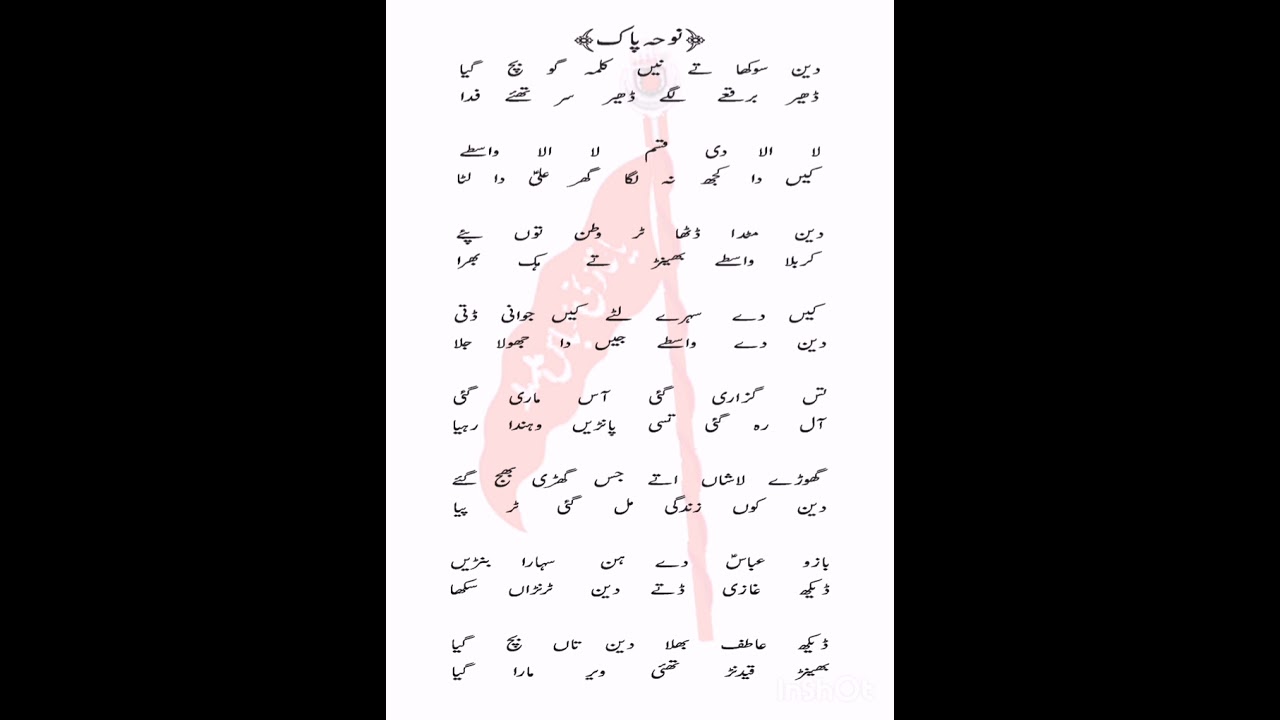 نوحہ پاک
دین سوکھا تے نیں کلمہ گو بچ گیا
ڈھیر برقعے لگے ڈھیر سر تھئے فدا
لا الا دی قسم لا الا واسطے
کیں دا کجھ نہ لگا گھر علیؑ دا لٹا
دین مٹدا ڈٹھا ٹر وطن توں پئے
کربلا واسطے بھینڑ تے ہک بھرا
کیں دے سہرے لٹے کیں جوانی ڈتی
دین دے واسطے جیں دا جھولا جلا
تس گزاری گئی آس ماری گئی
آل رہ گئی تسی پانڑیں وہندا رہیا
گھوڑے لاشاں اتے جس گھڑی بھج گئے
دین کوں زندگی مل گئی ٹر پیا
بازو عباسؑ دے ہن سہارا بنڑیں
ڈیکھ غازی ڈتے دین ٹرنڑاں سکھا
ڈیکھ عاطف بھلا دین تاں بچ گیا
بھینڑ قیدنڑ تھئی ویر مارا گیا
InshOt